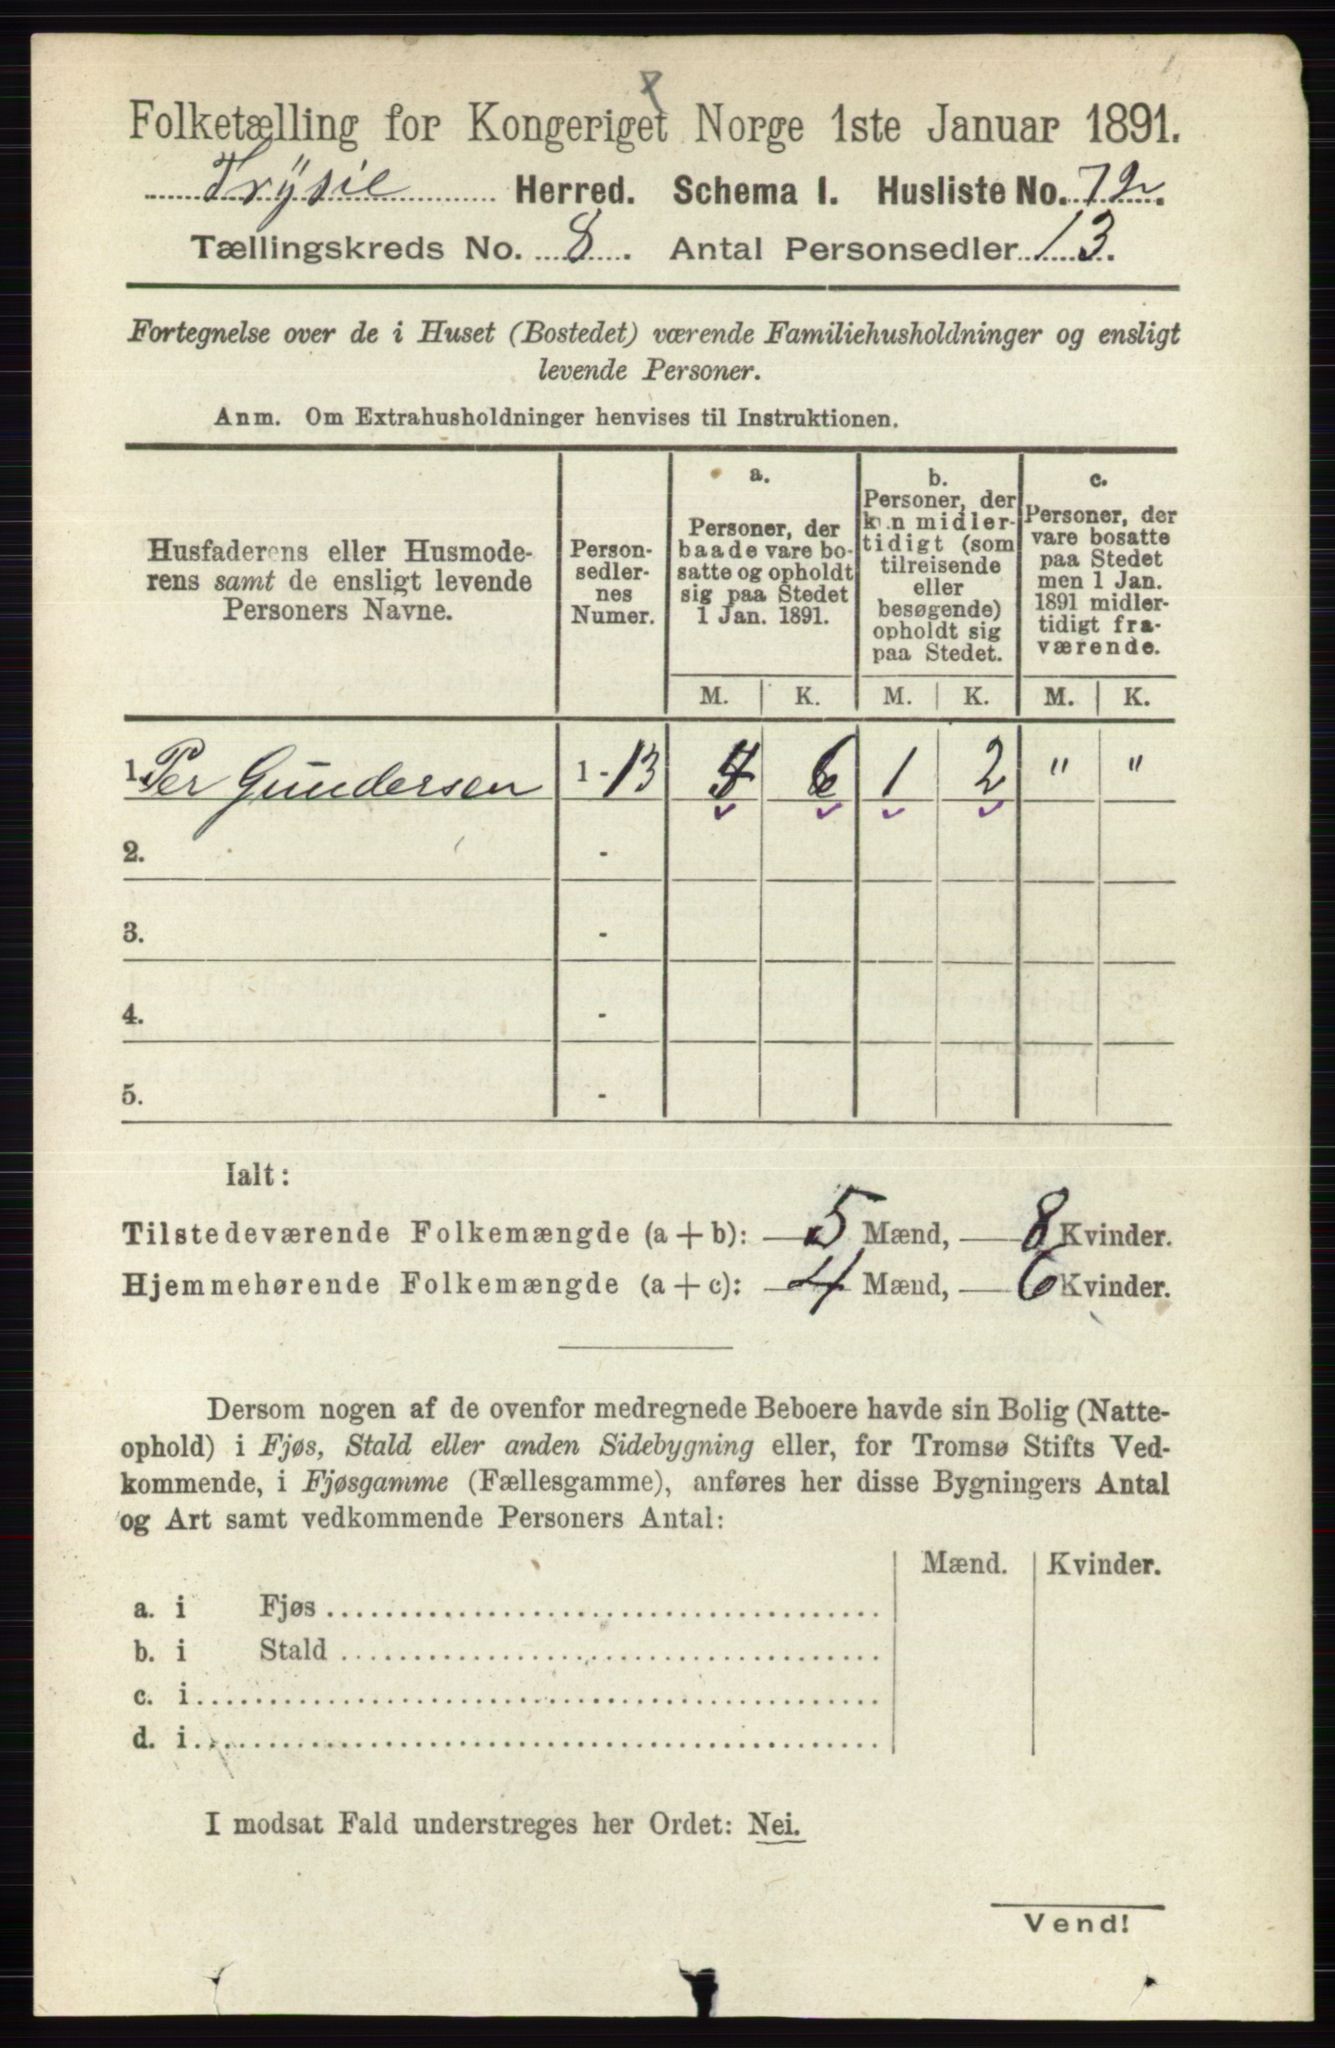 Folketælling for Kongeriget Norge 1ste Januar 1891.
Trysil Herred. Schema I. Husliste No. 72.
Tællingskreds No. 8. Antal Personsedler 13.
Fortegnelse over de i Huset (Bostedet) værende Familiehusholdninger og ensligt
levende Personer.
Anm. Om Extrahusholdninger henvises til Instruktionen.
Husfaderens eller Husmode-
rens samt de ensligt levende
Personers Navne.
Person-
sedler-
nes
Numer.
a.
Personer, der
baade vare bo-
satte og opholdt
sig paa Stedet
1 Jan. 1891.
b.
Personer, der
kun midler-
tidigt (som
tilreisende
eller
besøgende)
opholdt sig
paa Stedet.
c.
Personer, der
vare bosatte
paa Stedet
men 1 Jan.
1891 midler-
tidigt fra-
værende.
M. K. M. K. M. K.
1. Per Gundersen 1-13 4 6 1 2 " "
2. -
3. -
4. -
5. -
Ialt:
Tilstedeværende Folkemængde (a + b): 5 Mænd, 8 Kvinder.
Hjemmehørende Folkemængde (a + c): 4 Mænd, 6 Kvinder.
Dersom nogen af de ovenfor medregnede Beboere havde sin Bolig (Natte-
ophold) i Fjøs, Stald eller anden Sidebygning eller, for Tromsø Stifts Ved-
kommende, i Fjøsgamme (Fællesgamme), anføres her disse Bygningers Antal
og Art samt vedkommende Personers Antal:
Mænd. Kvinder.
a. i Fjøs
b. i Stald
c. i
d. i
I modsat Fald understreges her Ordet: Nei.
Vend!